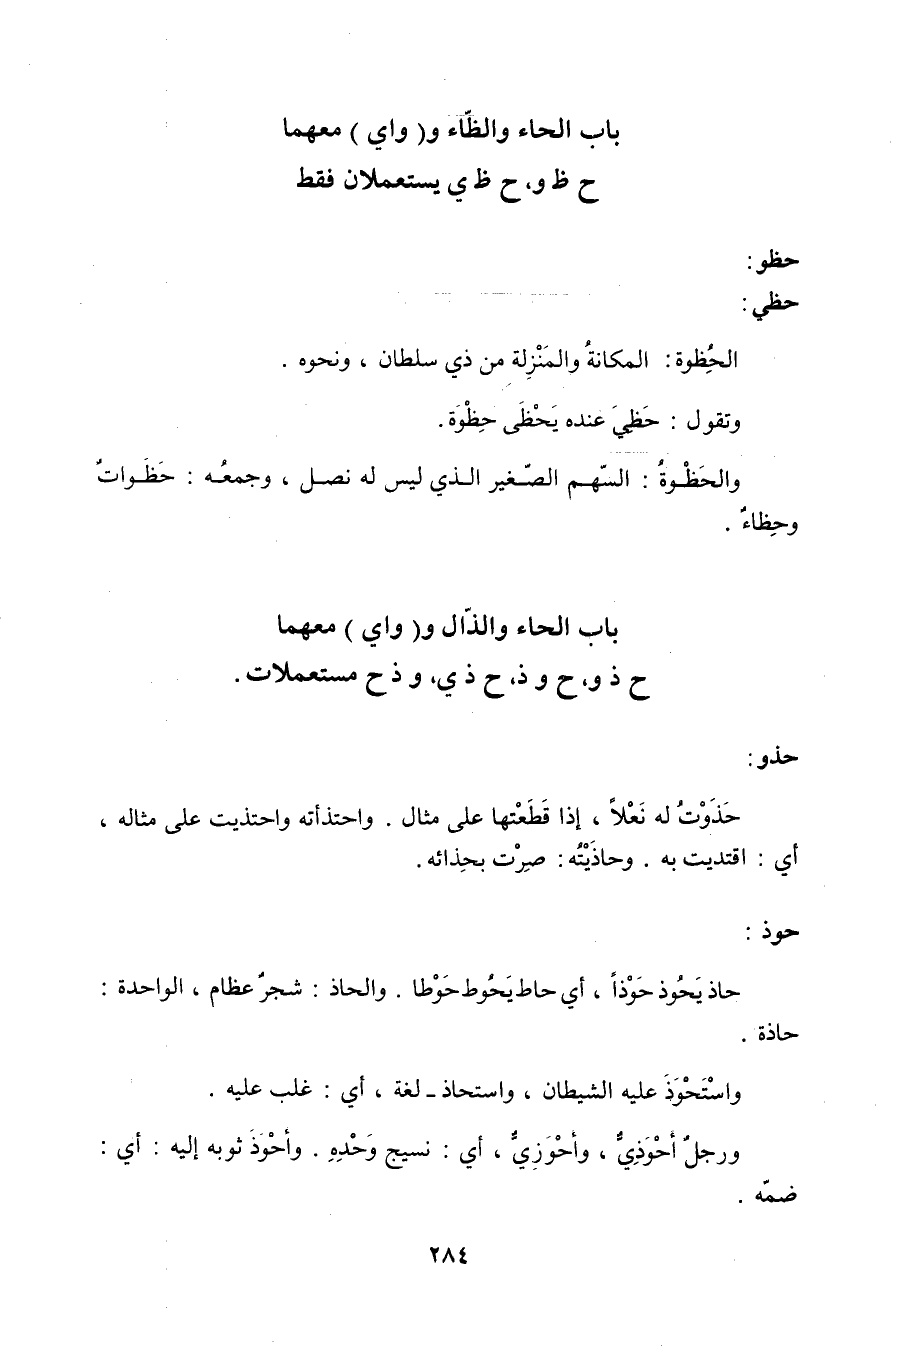 باب الحاء والظّاء و( واي ) معهما
ح ظ و، ح ظ ي يستعملان فقط
حظو :
حظي :
الحُِظوة : المكانةُ والمَنْزِلة من ذي سلطان ، ونحوه .
وتقول : حَظِيَ عنده يَحْظَى حِظْوَة .
والحَظْوةُ : السّهم الصّغير الذي ليس له نصل ، وجمعُه : حَظَواتٌ
وحِظاءٌ .
باب الحاء والذّال و( واي ) معهما
ح ذ و، ح و ذ، ح ذ ي، و ذ ح مستعملات .
حذو :
حَذَوْتُ له نَعْلاً ، إذا قَطَعْتها على مثال . واحتذأته واحتذيت على مثاله ،
أي : اقتديت به . وحاذَيْتُه : صِرْت بحِذائه .
حوذ :
حاذ يَحُوذ حَوْذاً ، أي حاط يَحُوط حَوْطا . والحاذ : شجرٌ عظام ، الواحدة :
حاذة .
واسْتَحْوَذَ عليه الشيطان ، واستحاذ ـ لغة ، أي : غلب عليه .
ورجلٌ أَحْوَذِيٌّ ، وأَحْوَزِيٌّ ، أي : نسيج وَحْدِهِ . وأَحْوَذَ ثوبه إليه : أي :
ضمّه .
٢٨٤